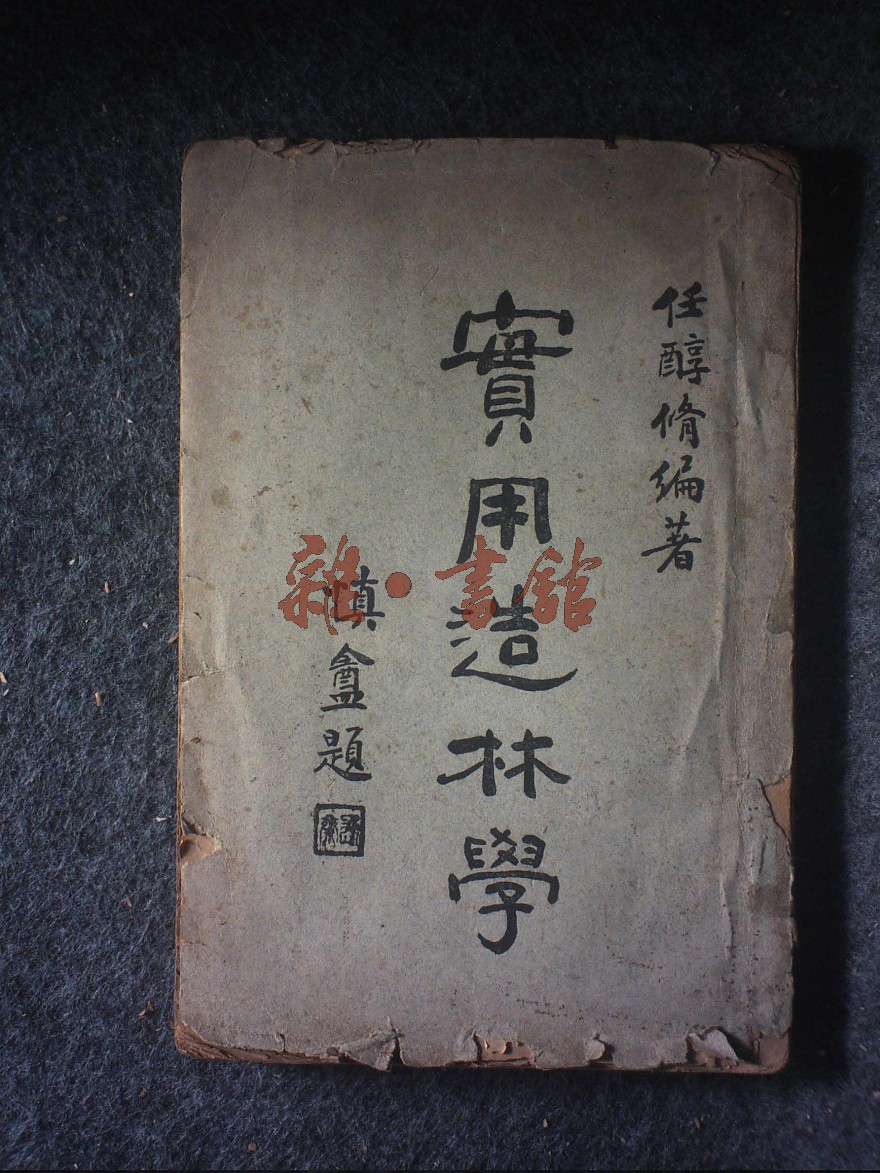 任醇脩編著
實用造林學
慎盦題
雜·書館